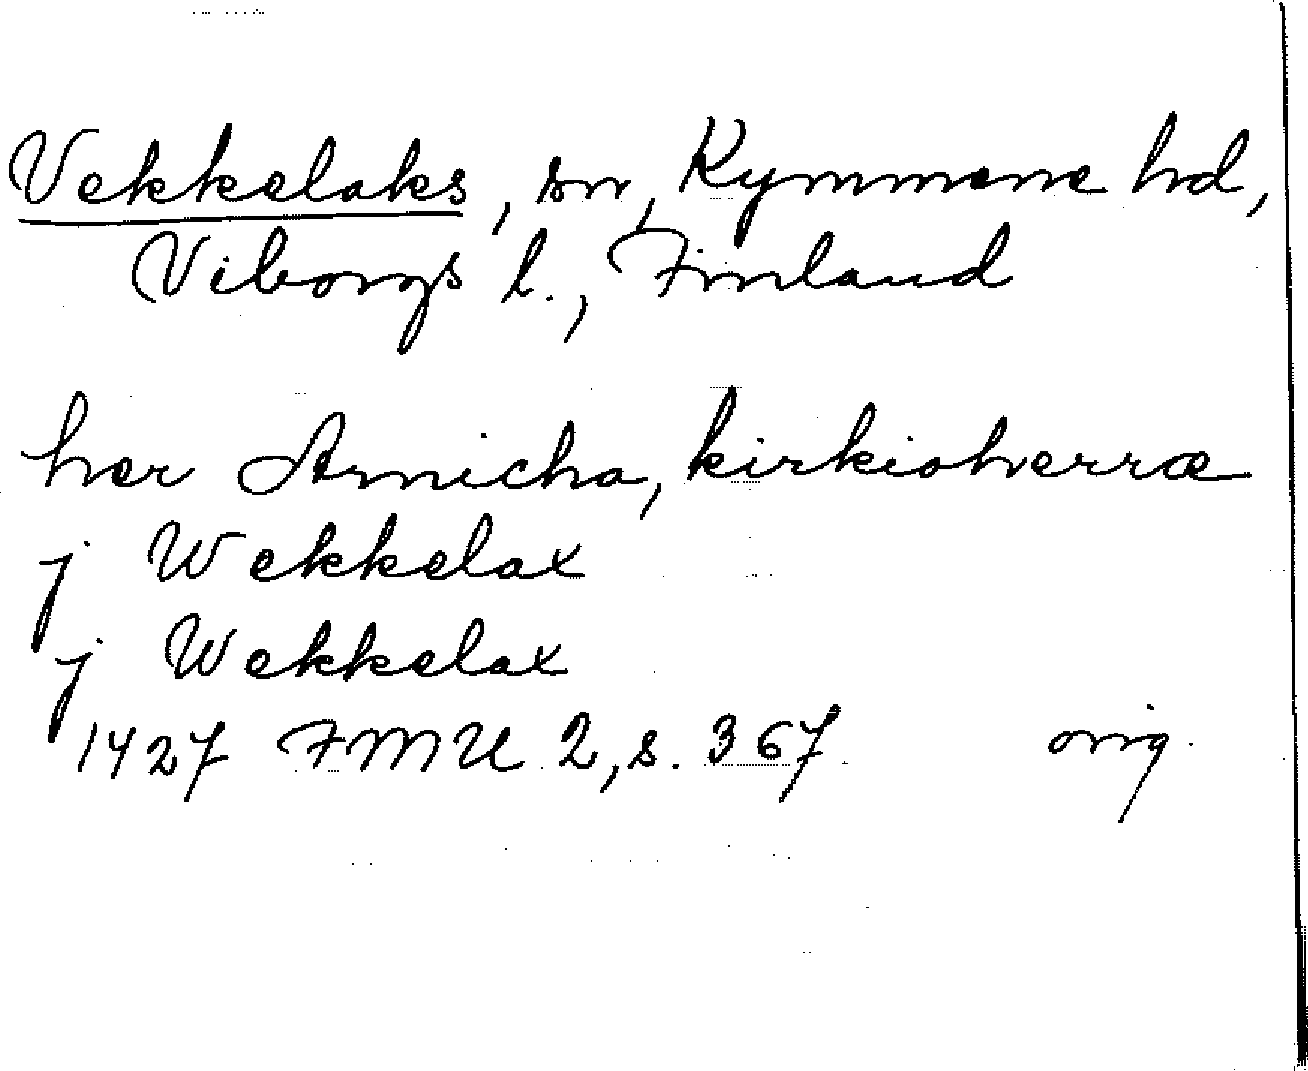 Vekkelaks, sn, Kymmene hd,
Viborgs l., Finland
her Arnicha, kirkioherræ
j Wekkelax
j Wekkelax
1427 FMU 2, s. 367 orig.